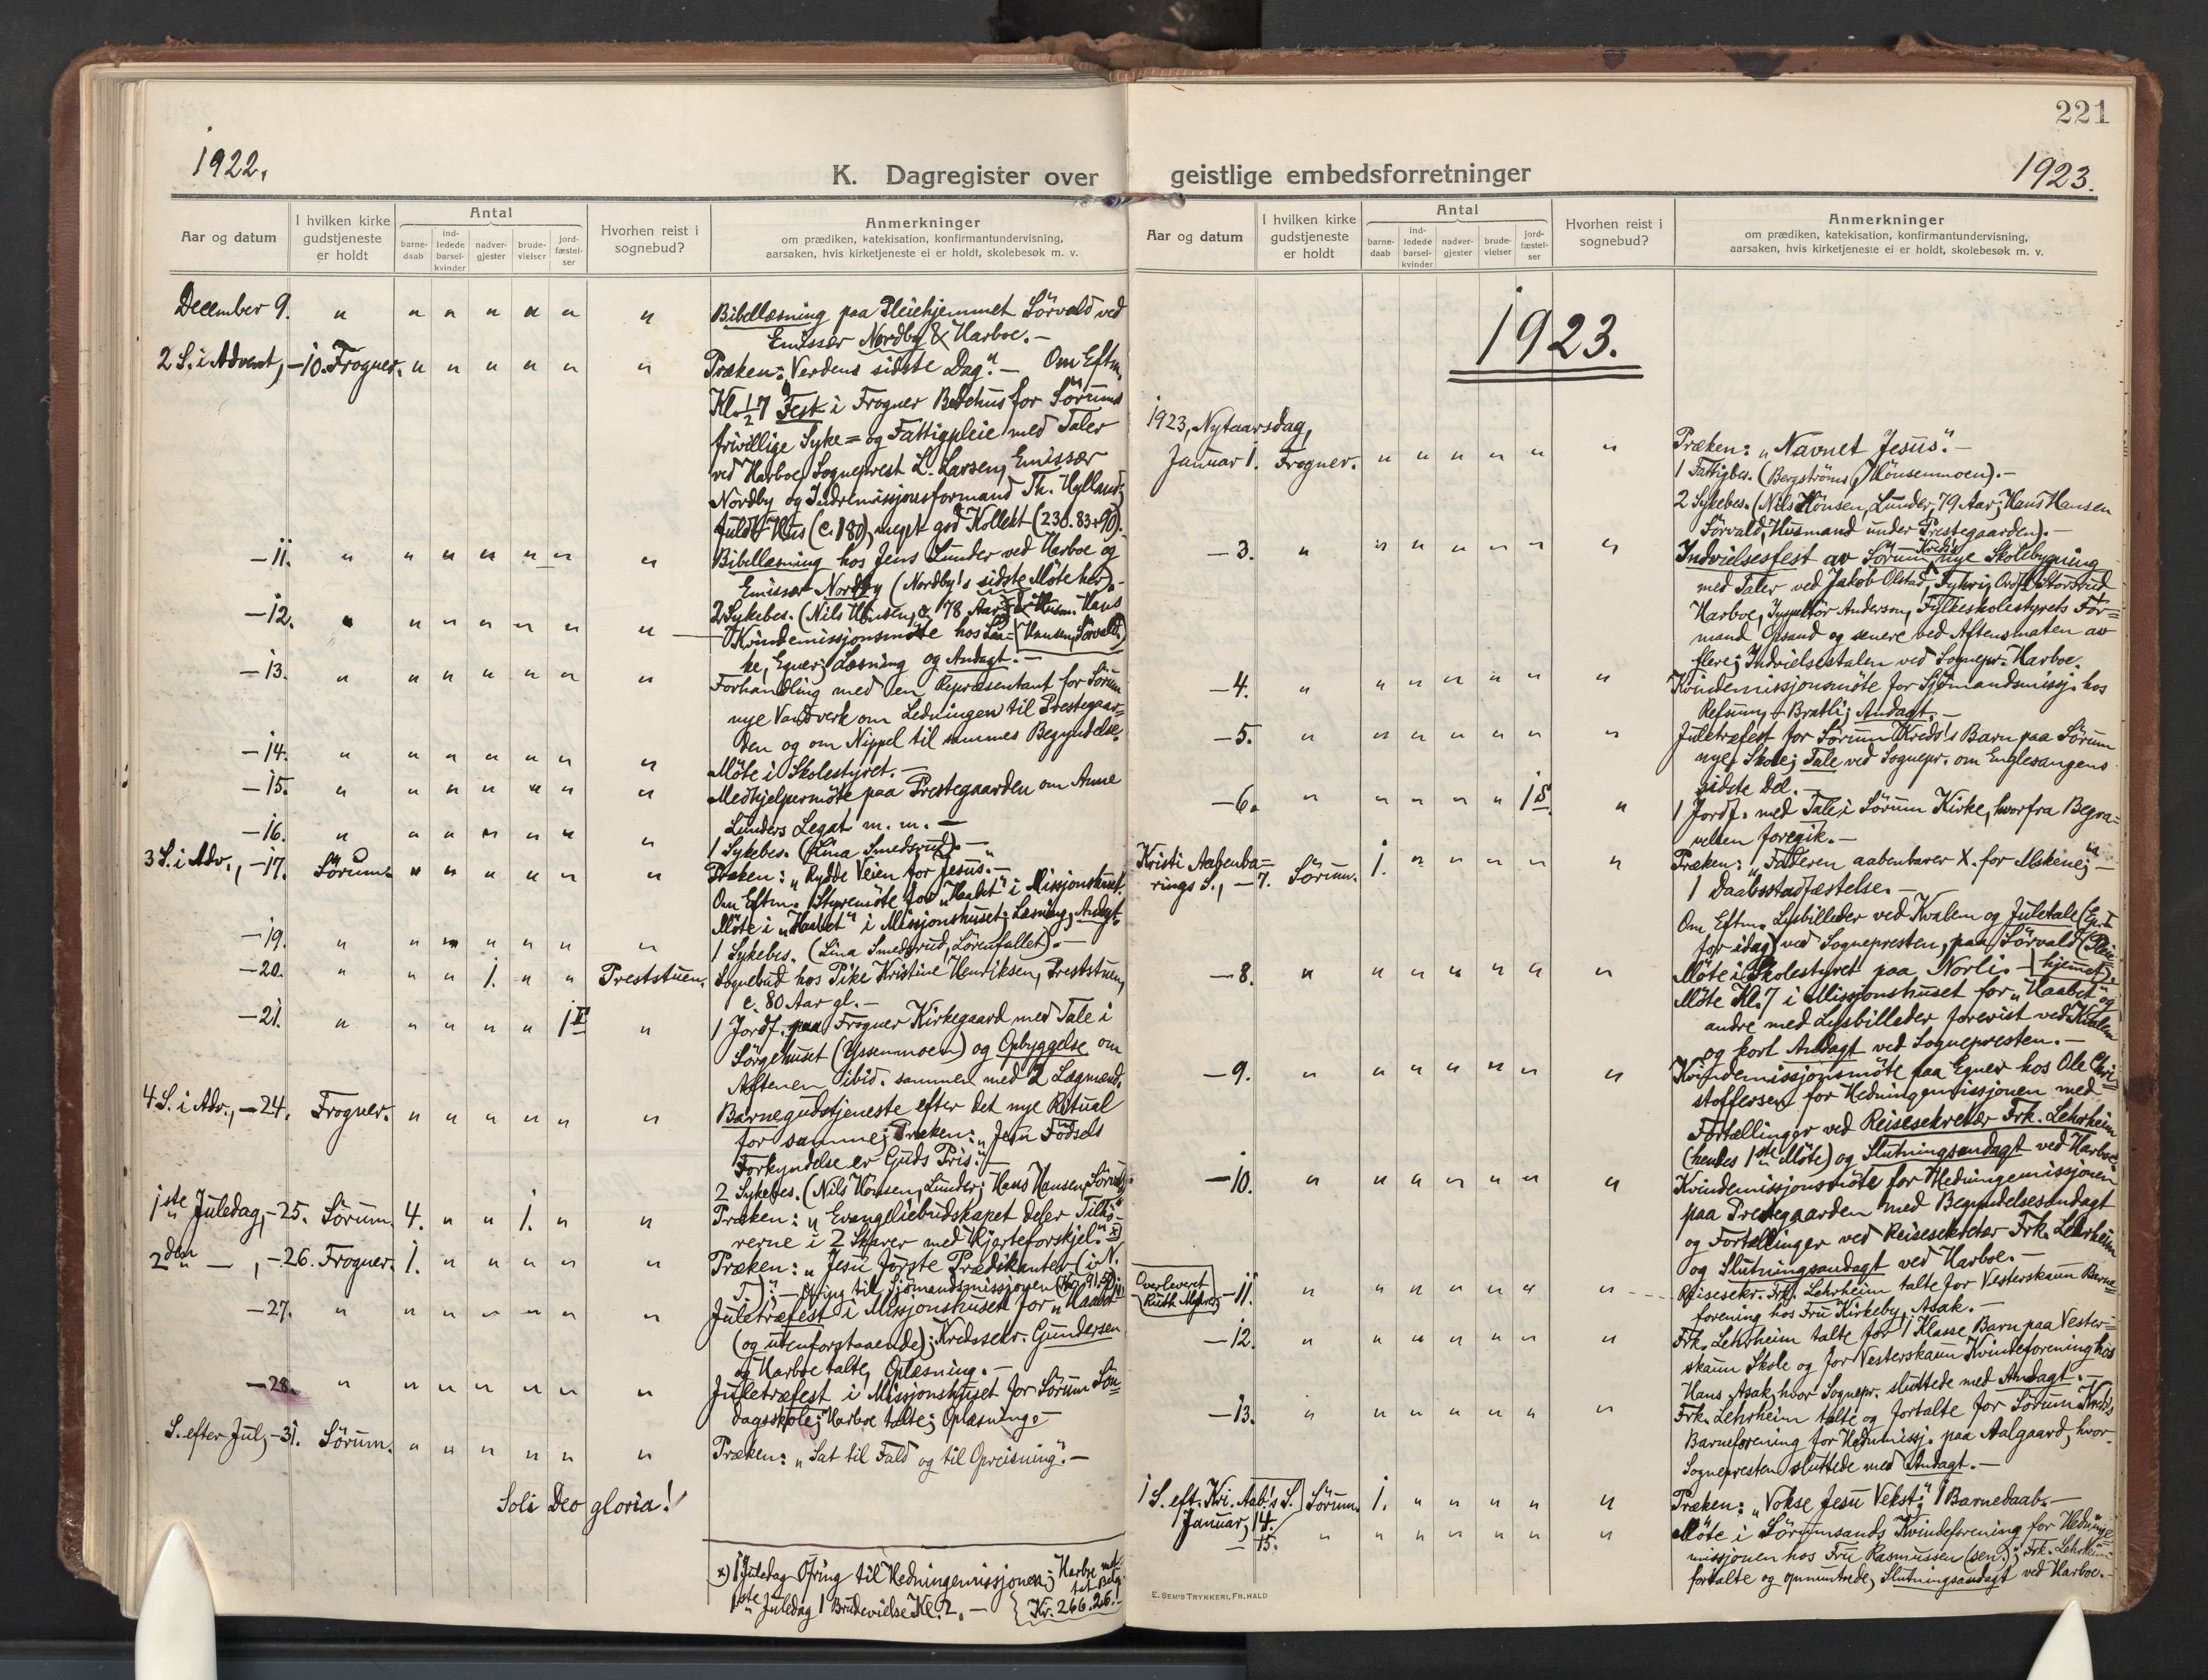 1922.
K. Dagregister over
Aar og datum
I hvilken kirke gudstjeneste er holdt
Antal
barne-daab
ind-ledede barsel-kvinder
nadver-gjester
brude-vielser
jord-fæstel-ser
Hvorhen reist i sognebud?
Anmerkninger
om prædiken, katekisation, konfirmantundervisning,
aarsaken, hvis kirketjeneste ei er holdt, skolebesøk m. v.
December 9. " " " " " " " Bibellæsning paa Pleiehjemmet Sörvald ved
Emissær Nordby & Harboe. —
2 S. i Advent, —10. Frogner. " " " " " " Præken: "Verdens sidste Dag". — Om Eftm.
Kl. ½7 Fest i Frogner Bedehus for Sörums
frivillige Syke= og Fattigpleie med Taler
ved Harboe, Sogneprest L. Larsen, Emissær
Nordby og Indremissjonsformand Th. Hylland;
fuldt Hus (c. 180), meget god Kollekt (230.83+90).
—11. " " " " " " " Bibellæsning hos Jens Lunder ved Harboe og
Emissær Nordby (Nordby's sidste Möte her). —
—12. " " " " " " " 2 Sykebes. (Nils Hönsen, 78 Aar, & Husm. Hans Hansen, Sörvald.)
Kvindemissjonsmöte hos
ke, Egner; Læsning og Andagt. —
—13. " " " " " " " Forhandling med en Repræsentant for Sörum
nye Vandverk om Ledningen til Prestegaar=
den og om Nippel til sammes Begyndelse.
—14. " " " " " " " Möte i Skolestyret. —
—15. " " " " " " " Medhjelpermöte paa Prestegaarden om Anne
Lunders Legat m. m. —
—16. " " " " " " " 1 Sykebes. (Lina Smedsrud). —
3 S. i Adv., —17. Sörum. " " " " " " Præken: "Rydde Veien for Jesus". —
Om Eftm. Styremöte for "Haabet" i Missjonshuset.
Möte i "Haabet" i Missjonshuset: Læsning, Andagt.
—19. " " " " " " " 1 Sykebes. (Lina Smedsrud, Lörenfallet). —
—20. " " " 1. " " Preststuen. Sognebud hos Pike Kristine Henriksen, Preststuen,
c. 80 Aar gl. —
—21. " " " " " 1 I " 1 Jordf. paa Frogner Kirkegaard med Tale i
Sörgehuset (Yssenmoen) og Opbyggelse om
Aftenen ibid. sammen med 2 Lægmænd.
4 S. i Adv., —24. Frogner. " " " " " " Barnegudstjeneste efter det nye Ritual
for samme; Præken: "Jesu Födsels
Forkyndelse er Guds Pris". —
2 Sykebes. (Nils Hönsen, Lunder; Hans Hansen, Sörvald).
1ste Juledag, —25. Sörum. 4. " " 1. " " Præken: "Evangeliebudskapet deler Tilhö=
rerne i 2 Skarer med Hjerteforskjel". x)
2den — , —26. Frogner. 1. " " " " " Præken: "Jesu förste Prædikanter (i N.
T.)". — Ofring til Sjömandsmissjonen
—27. " " " " " " " Juletræfest i Missjonshuset for "Haabet"
(og utenforstaaende); Kredssekr. Gundersen
og Harboe talte, Oplæsning. —
—28. " " " " " " " Juletræfest i Missjonshuset for Sörum Sön=
dagsskole; Harboe talte; Oplæsning. —
S. efter Jul, —31. Sörum. " " " " " " Præken: "Sat til Fald og til Opreisning". —
Soli Deo gloria!
x) 1 Juledag Ofring til Hedningemissjonen; Harbo
1ste Juledag 1 Brudevielse Kl. 2. — Kr. 266.26. —
221
geistlige embedsforretninger
1923.
Aar og datum
I hvilken kirke gudstjeneste er holdt
Antal
barne-daab
ind-ledede barsel-kvinder
nadver-gjester
brude-vielser
jord-fæstel-ser
Hvorhen reist i sognebud?
Anmerkninger
om prædiken, katekisation, konfirmantundervisning,
aarsaken, hvis kirketjeneste ei er holdt, skolebesøk m. v.
1923.
1923, Nytaarsdag,
Januar 1. Frogner. " " " " " " Præken: "Navnet Jesus". —
1 Fattigbes. (Bergströms, Hönsenmoen). —
2 Sykebes. (Nils Hönsen, Lunder, 79 Aar; Hans Hansen
Sörvald, Husmand under Prestegaarden). —
—3. " " " " " " " Indvielsesfest av Sörum Kreds' nye Skolebygning
med Taler ved Jakob Olstad, Storsrud
Harboe, Inspektör Anderson, Fylkeskolestyrets For=
mand Opsand og senere ved Aftensmaten av
flere; Indvielsestalen ved Sognepr. Harboe.
—4. " " " " " " " Kvindemissjonsmöte for Sjömandsmissj. hos
Refsum, Bratli; Andagt. —
—5. " " " " " " " Juletræfest for Sörum Kreds's Barn paa Sörum
nye Skole; Tale ved Sognepr. om Englesangens
sidste Del. —
—6. " " " " " 1 S. " 1 Jordf. med Tale i Sörum Kirke, hvorfra Begra=
velsen foregik. —
Kristi Aabenba=
rings S., —7. Sörum. 1. " " " " " Præken: "Faderen aabenbarer X. for Mskene"; —
1 Daabsstadfæstelse. —
Om Eftm. Lysbilleder ved Kvalem og Juletale (Ep. I
for idag) ved Sognepresten, paa Sörvald (Plei=
hjemmet).
—8. " " " " " " " Möte i Skolestyret paa Norli. —
Möte Kl. 7 i Missjonshuset for "Haabet" og
andre med Lysbilleder forevist ved Kvalem
og kort Andagt ved Sognepresten. —
—9. " " " " " " " Kvindemissjonsmöte paa Egner hos Ole Chri=
stoffersen for Hedningemissjonen med
Fortællinger ved Reisesekretær Frk. Lehrheim
(hendes 1ste Möte) og Slutningsandagt ved Harboe.
—10. " " " " " " " Kvindemissjonsmöte for Hedningemissjonen
paa Prestegaarden med Begyndelsesandagt
og Fortællinger ved Reisesekretær Frk. Lehrheim
og Slutningsandagt ved Harboe. —
Overlevert
Ruth —11. " " " " " " " Reisesekr. Frk. Lehrheim talte for Vesterskaun Barne=
forening hos Fru Kirkeby, Asak. —
—12. " " " " " " " Frk. Lehrheim talte for 1 Klasse Barn paa Vester=
skaun Skole og for Vesterskaun Kvindeforening hos
Hans Asak, hvor Sognepr. sluttede med Andagt. —
—13. " " " " " " " Frk. Lehrheim talte og fortalte for Sörum Kreds
Barneforening for Hednmissj. paa Aalgaard, hvor
Sognepresten sluttede med Andagt. —
1 S. eft. Kri. Aab.'s S. Sörum. 1. " " " " " Præken: "Vokse Jesu Vekst"; 1 Barnedaab. —
Januar, 14.
— 15. " " " " " " " Möte i Sörumsands Kvindeforening for Hedninge=
missjonen hos Fru Rasmussen (sen.); Frk. Lehrheim
fortalte og opmuntrede, Slutningsandagt ved Harboe. —
E. SEM'S TRYKKERI, FR.HALD